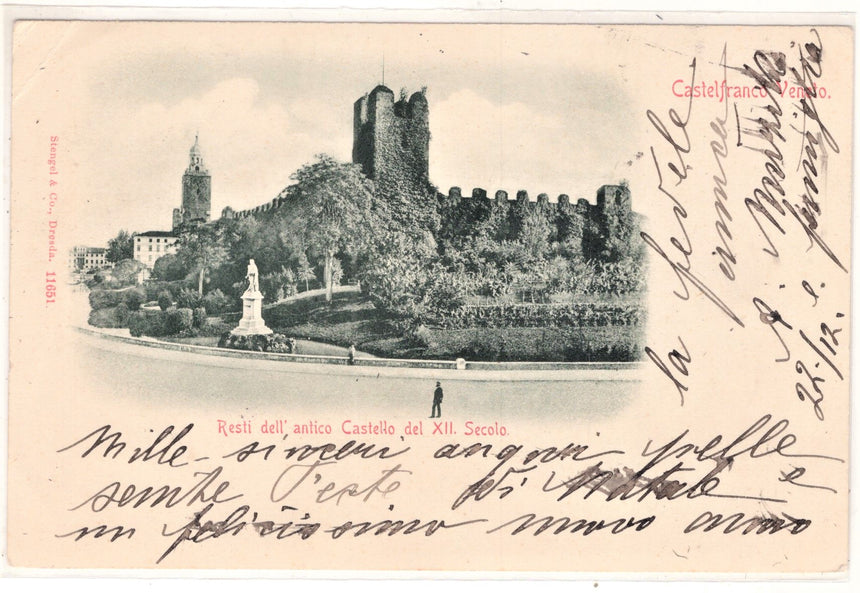 Castelfranco Veneto.
Stengel & Co., Dresda. 11651.
Resti dell' antico Castello del XII. Secolo.
Mille sinceri auguri pelle
Feste di Natale e
un felicissimo nuovo anno
la fedele
amica
A.
22/12. e famiglia